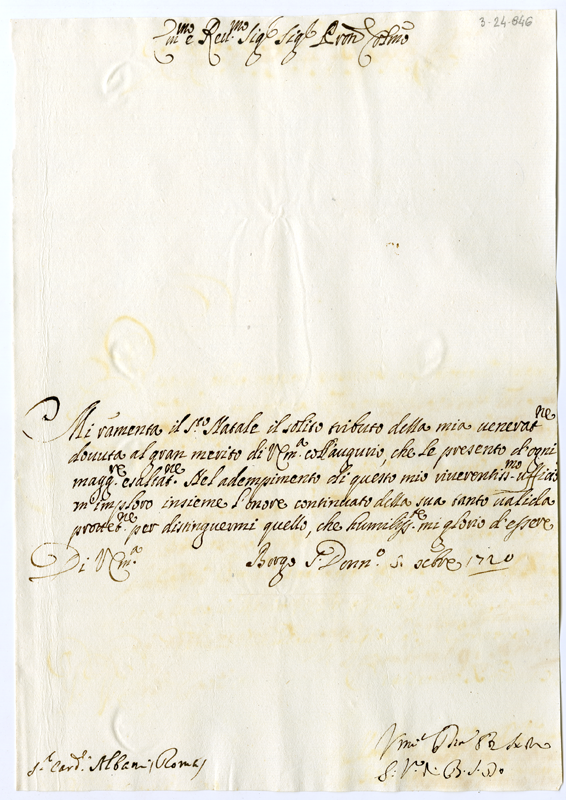 3-24-846
Em.mo e Rev.mo Sig.r Sig.r Pron Colmo
Mi ramenta il S.to Natale il solito tributo della mia venerat.ne
dovuta al gran merito di V Em.a coll'augurio, che le presento d'ogni
magg.re esaltat.ne. Nel adempimento di questo mio riverentiss.mo uffizio
m'imploro insieme l'onore continuato della sua tanto valida
protet.ne per distinguermi quello, che humiliss.te mi glorio d'essere
Di V Em.a
Borgo S. Donn.o 5. Xcbre 1720
S.r Card. Albani, Roma